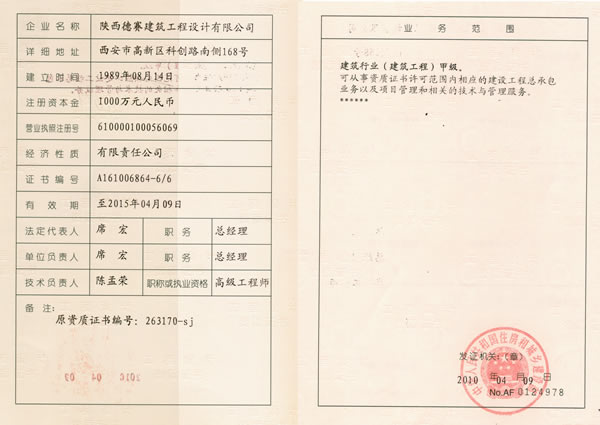 企业名称 陕西德赛建筑工程设计有限公司
详细地址 西安市高新区科创路南侧168号
建立时间 1989年08月14日
注册资本金 1000万元人民币
营业执照注册号 610000100056069
经济性质 有限责任公司
证书编号 A161006864-6/6
有效期 至2015年04月09日
法定代表人 席宏 职务 总经理
单位负责人 席宏 职务 总经理
技术负责人 陈孟荣 职称或执业资格 高级工程师
备注:
原资质证书编号: 263170-sj
业务范围
建筑行业(建筑工程)甲级。
可从事资质证书许可范围内相应的建设工程总承包
业务以及项目管理和相关的技术与管理服务。
******
发证机关:(章)
2010年04月09日
No.AF 0124978